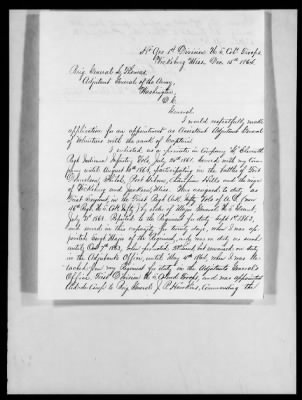 Hd Qrs 1st Division U.S. Cold Troops
Vicksburg Miss. Dec 15th 1864.
Brig General L. Thomas
Adjutant General of the Army
Washington
D.C.
General
I would respectfully make
application for an appointment as Assistant Adjutant General
of Volunteers with the rank of Captain.
I enlisted, as a private in Company Eleventh
Regt Indiana Infantry Vols, July 1861. Served with my Com-
pany until August 1863, participating in the battles of Fort
Donelson, Shiloh, Port Gibson, Champion Hills and the siege
of Vicksburg and Jackson, Miss. Was assigned to duty as
First Sergeant, in the First Regt Ark. Vols of A.D. (now
46th Regt U.S. Cold Infty) by order of Major General U.S. Grant,
July 1863. Reported to the Regiment for duty Sept 1st 1863,
and served in this capacity, for twenty days, when I was ap-
pointed Sergt Major of the Regiment, and was on duty as such
until 1863, when promoted 1st Lieut. but remained on duty
in the Adjutants Office, until May 4th 1864, when I was de-
tached from my Regiment for duty in the Adjutant General's
Office, First Division U.S. Cold Troops, and was appointed
Aid-de-Camp to Brig General J. P. Hawkins, Commanding the